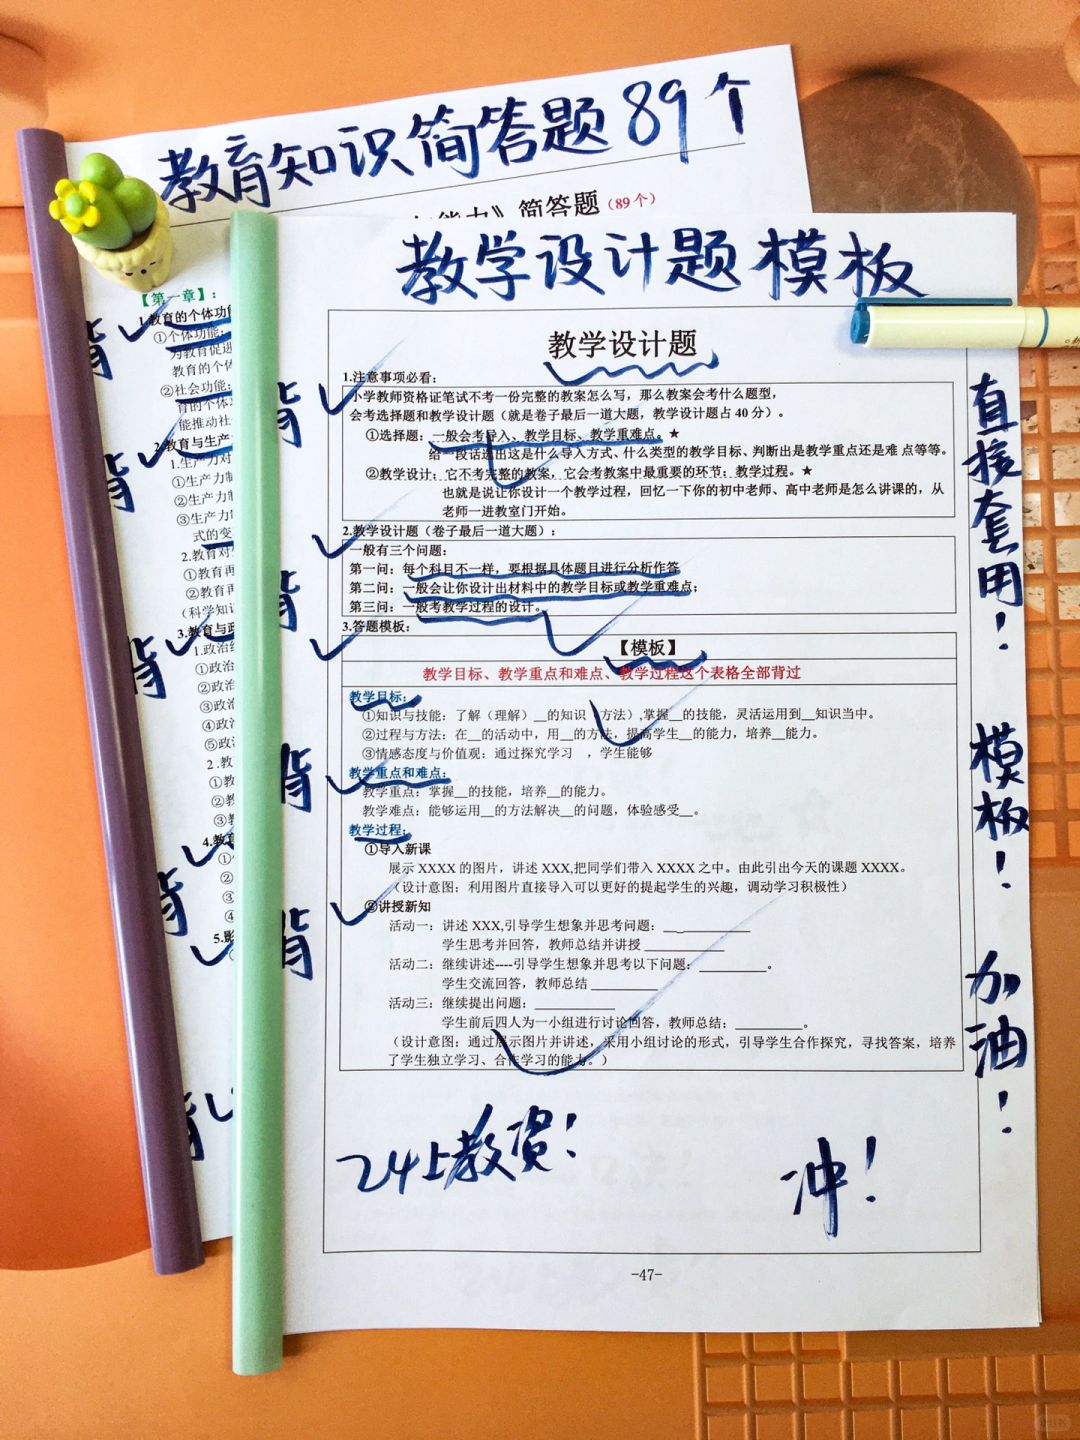 教育知识简答题89个
简答题（89个）
【第一章】：
1.教育的个体功
①个体功能：
为教育促进
教育的个体
②社会功能：
育的个体
能推动社
2.教育与生产
1.生产力对
①生产力制
②生产力制
③生产力
式的变
2.教育对
①教育再
②教育再
（科学知识
3.教育与政
1.政治经
①政治
②政治
③政治
④政治
⑤政治
2.教
①教
②教
③教
4.教育
①
②
③
④
5.影
背
背
背
背
背
背
背
背
背
背
教学设计题模板
教学设计题
1.注意事项必看：
小学教师资格证笔试不考一份完整的教案怎么写，那么教案会考什么题型，
会考选择题和教学设计题（就是卷子最后一道大题，教学设计题占 40 分）。
①选择题：一般会考导入、教学目标、教学重难点。★
给一段话选出这是什么导入方式、什么类型的教学目标、判断出是教学重点还是难点等等。
②教学设计：它不考完整的教案，它会考教案中最重要的环节：教学过程。★
也就是说让你设计一个教学过程，回忆一下你的初中老师、高中老师是怎么讲课的，从
老师一进教室门开始。
2.教学设计题（卷子最后一道大题）：
一般有三个问题：
第一问：每个科目不一样，要根据具体题目进行分析作答
第二问：一般会让你设计出材料中的教学目标或教学重难点；
第三问：一般考教学过程的设计。
3.答题模板：
【模板】
教学目标、教学重点和难点、教学过程这个表格全部背过
教学目标：
①知识与技能：了解（理解）__的知识（方法）,掌握__的技能，灵活运用到__知识当中。
②过程与方法：在__的活动中，用__的方法，提高学生__的能力，培养__能力。
③情感态度与价值观：通过探究学习 ，学生能够
教学重点和难点：
教学重点：掌握__的技能，培养__的能力。
教学难点：能够运用__的方法解决__的问题，体验感受__。
教学过程：
①导入新课
展示 XXXX 的图片，讲述 XXX,把同学们带入 XXXX 之中。由此引出今天的课题 XXXX。
（设计意图：利用图片直接导入可以更好的提起学生的兴趣，调动学习积极性）
②讲授新知
活动一：讲述 XXX,引导学生想象并思考问题：____________
学生思考并回答，教师总结并讲授____________
活动二：继续讲述----引导学生想象并思考以下问题：__________。
学生交流回答，教师总结__________
活动三：继续提出问题：____________
学生前后四人为一小组进行讨论回答，教师总结：__________。
（设计意图：通过展示图片并讲述，采用小组讨论的形式，引导学生合作探究，寻找答案，培养
了学生独立学习、合作学习的能力。）
直接套用！
模板！
加油！
24上教资！
冲！
-47-